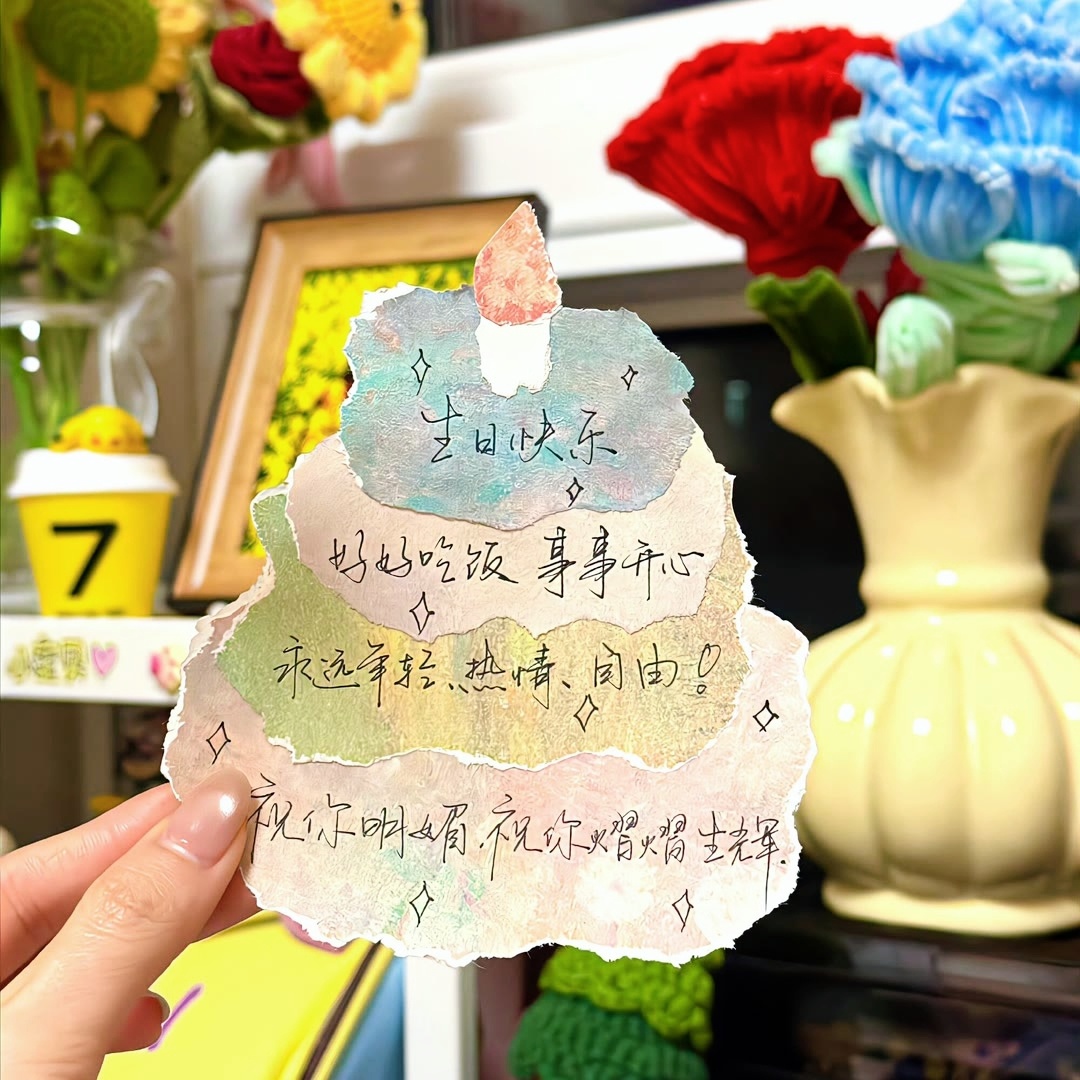 生日快乐
好好吃饭 事事开心
永远年轻、热情、自由！
祝你明媚.祝你熠熠生辉.
7
小宝贝